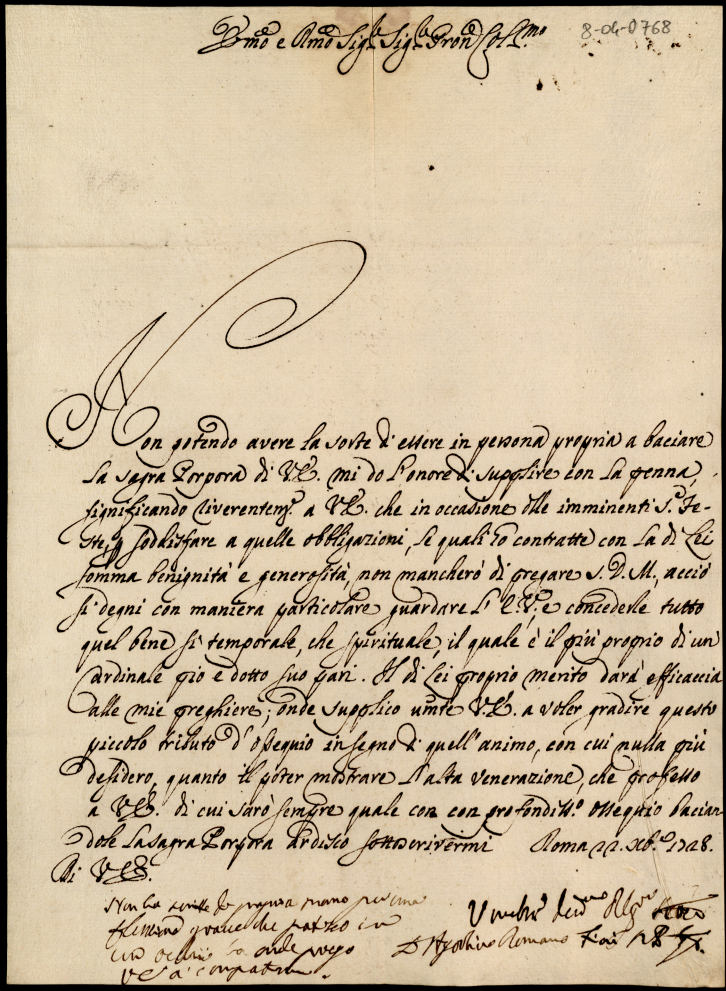 Emo e Rmo Sigr. Sigr. Pron Colmo
8-04-0768
Non potendo avere la sorte di essere in persona propria a baciare
la sagra Porpora di V.E. mi do l'onore di supplire con la penna,
significando riverentemte. a V.E. che in occasione delle imminenti Ste. Fe-
ste, p sodisfare a quelle obbligazioni, le quali ho contratte con la di Lei
somma benignità e generosità, non mancherò di pregare S. D. M., acciò
si degni con maniera particolare guardare l'E.V., e concederle tutto
quel bene sì temporale, che spirituale, il quale è il più proprio di un
Cardinale pio e dotto suo pari. Il di Lei proprio merito darà efficaccia
alle mie preghiere; onde supplico umte V.E. a voler gradire questo
piccolo tributo d'ossequio in segno di quell'animo, con cui nulla più
desidero, quanto il poter mostrare l'alta venerazione, che professo
a V.E. di cui sarò sempre quale con con profondisso. ossequio bacian
dole la sagra Porpora ardisco sottoscrivermi Roma 22. Xbre. 1728.
Di V.E.
Non ha scritto di propria mano per una
flussione grave che patisco in
un occhio onde prego
V.E. a compatirmi.
D Agostino Romano